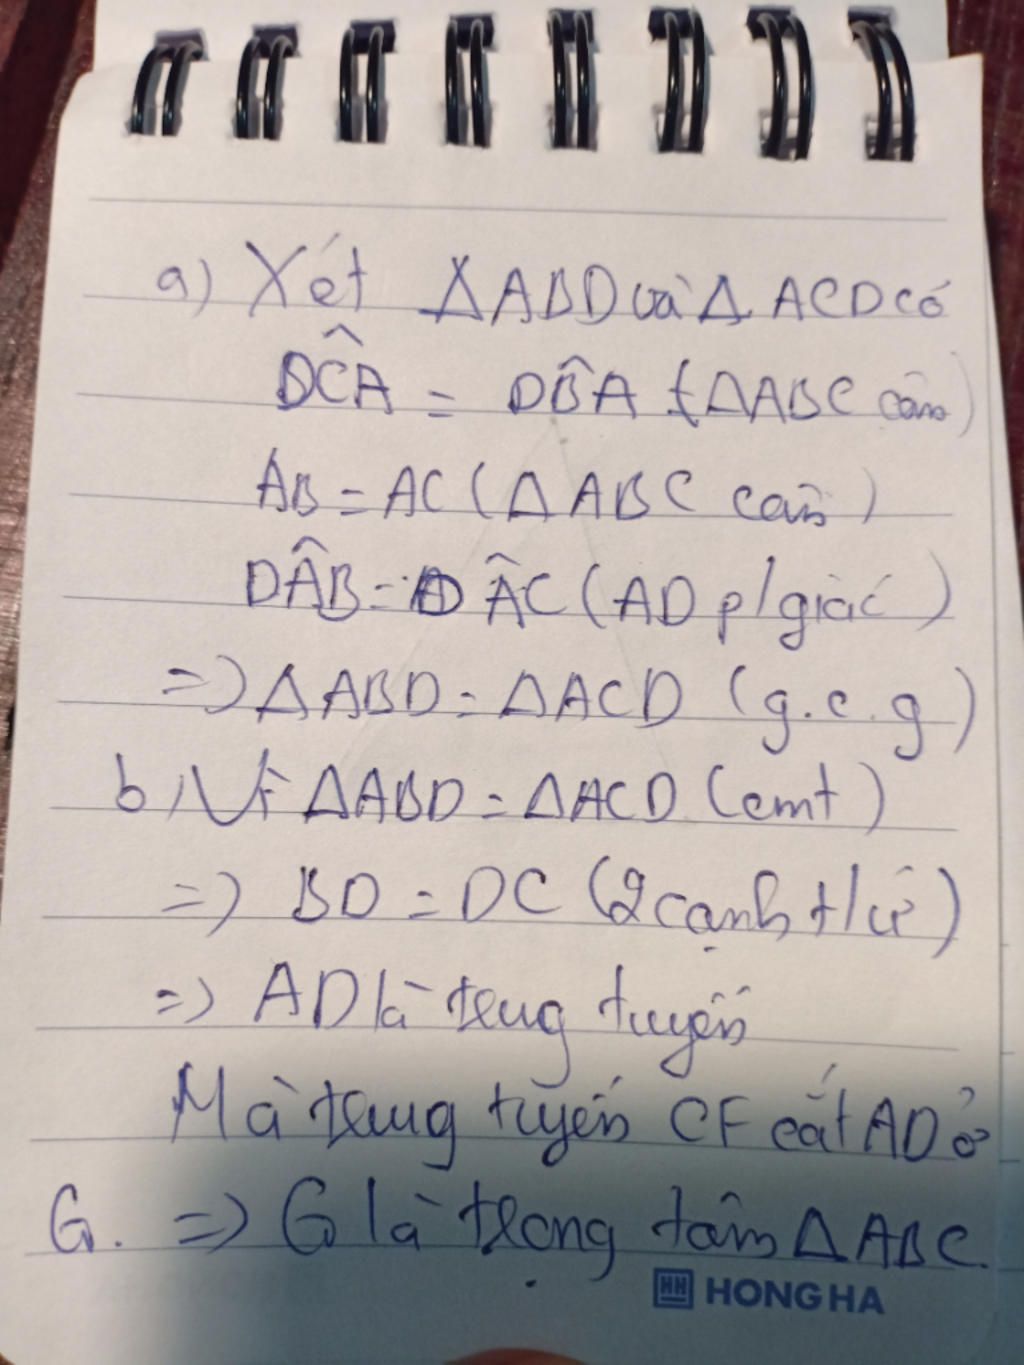 a) Xét ΔABD và Δ ACD có
DĈA = DB̂A (ΔABC cân)
AB = AC (ΔABC cân)
DÂB = DÂC (AD p/giác)
=> ΔABD = ΔACD (g.c.g)
b) Vì ΔABD = ΔACD (cmt)
=> BD = DC (2 cạnh t/ứ)
=> AD là trung tuyến
Mà trung tuyến CF cắt AD ở
G. => G là trọng tâm ΔABC.
HONG HA